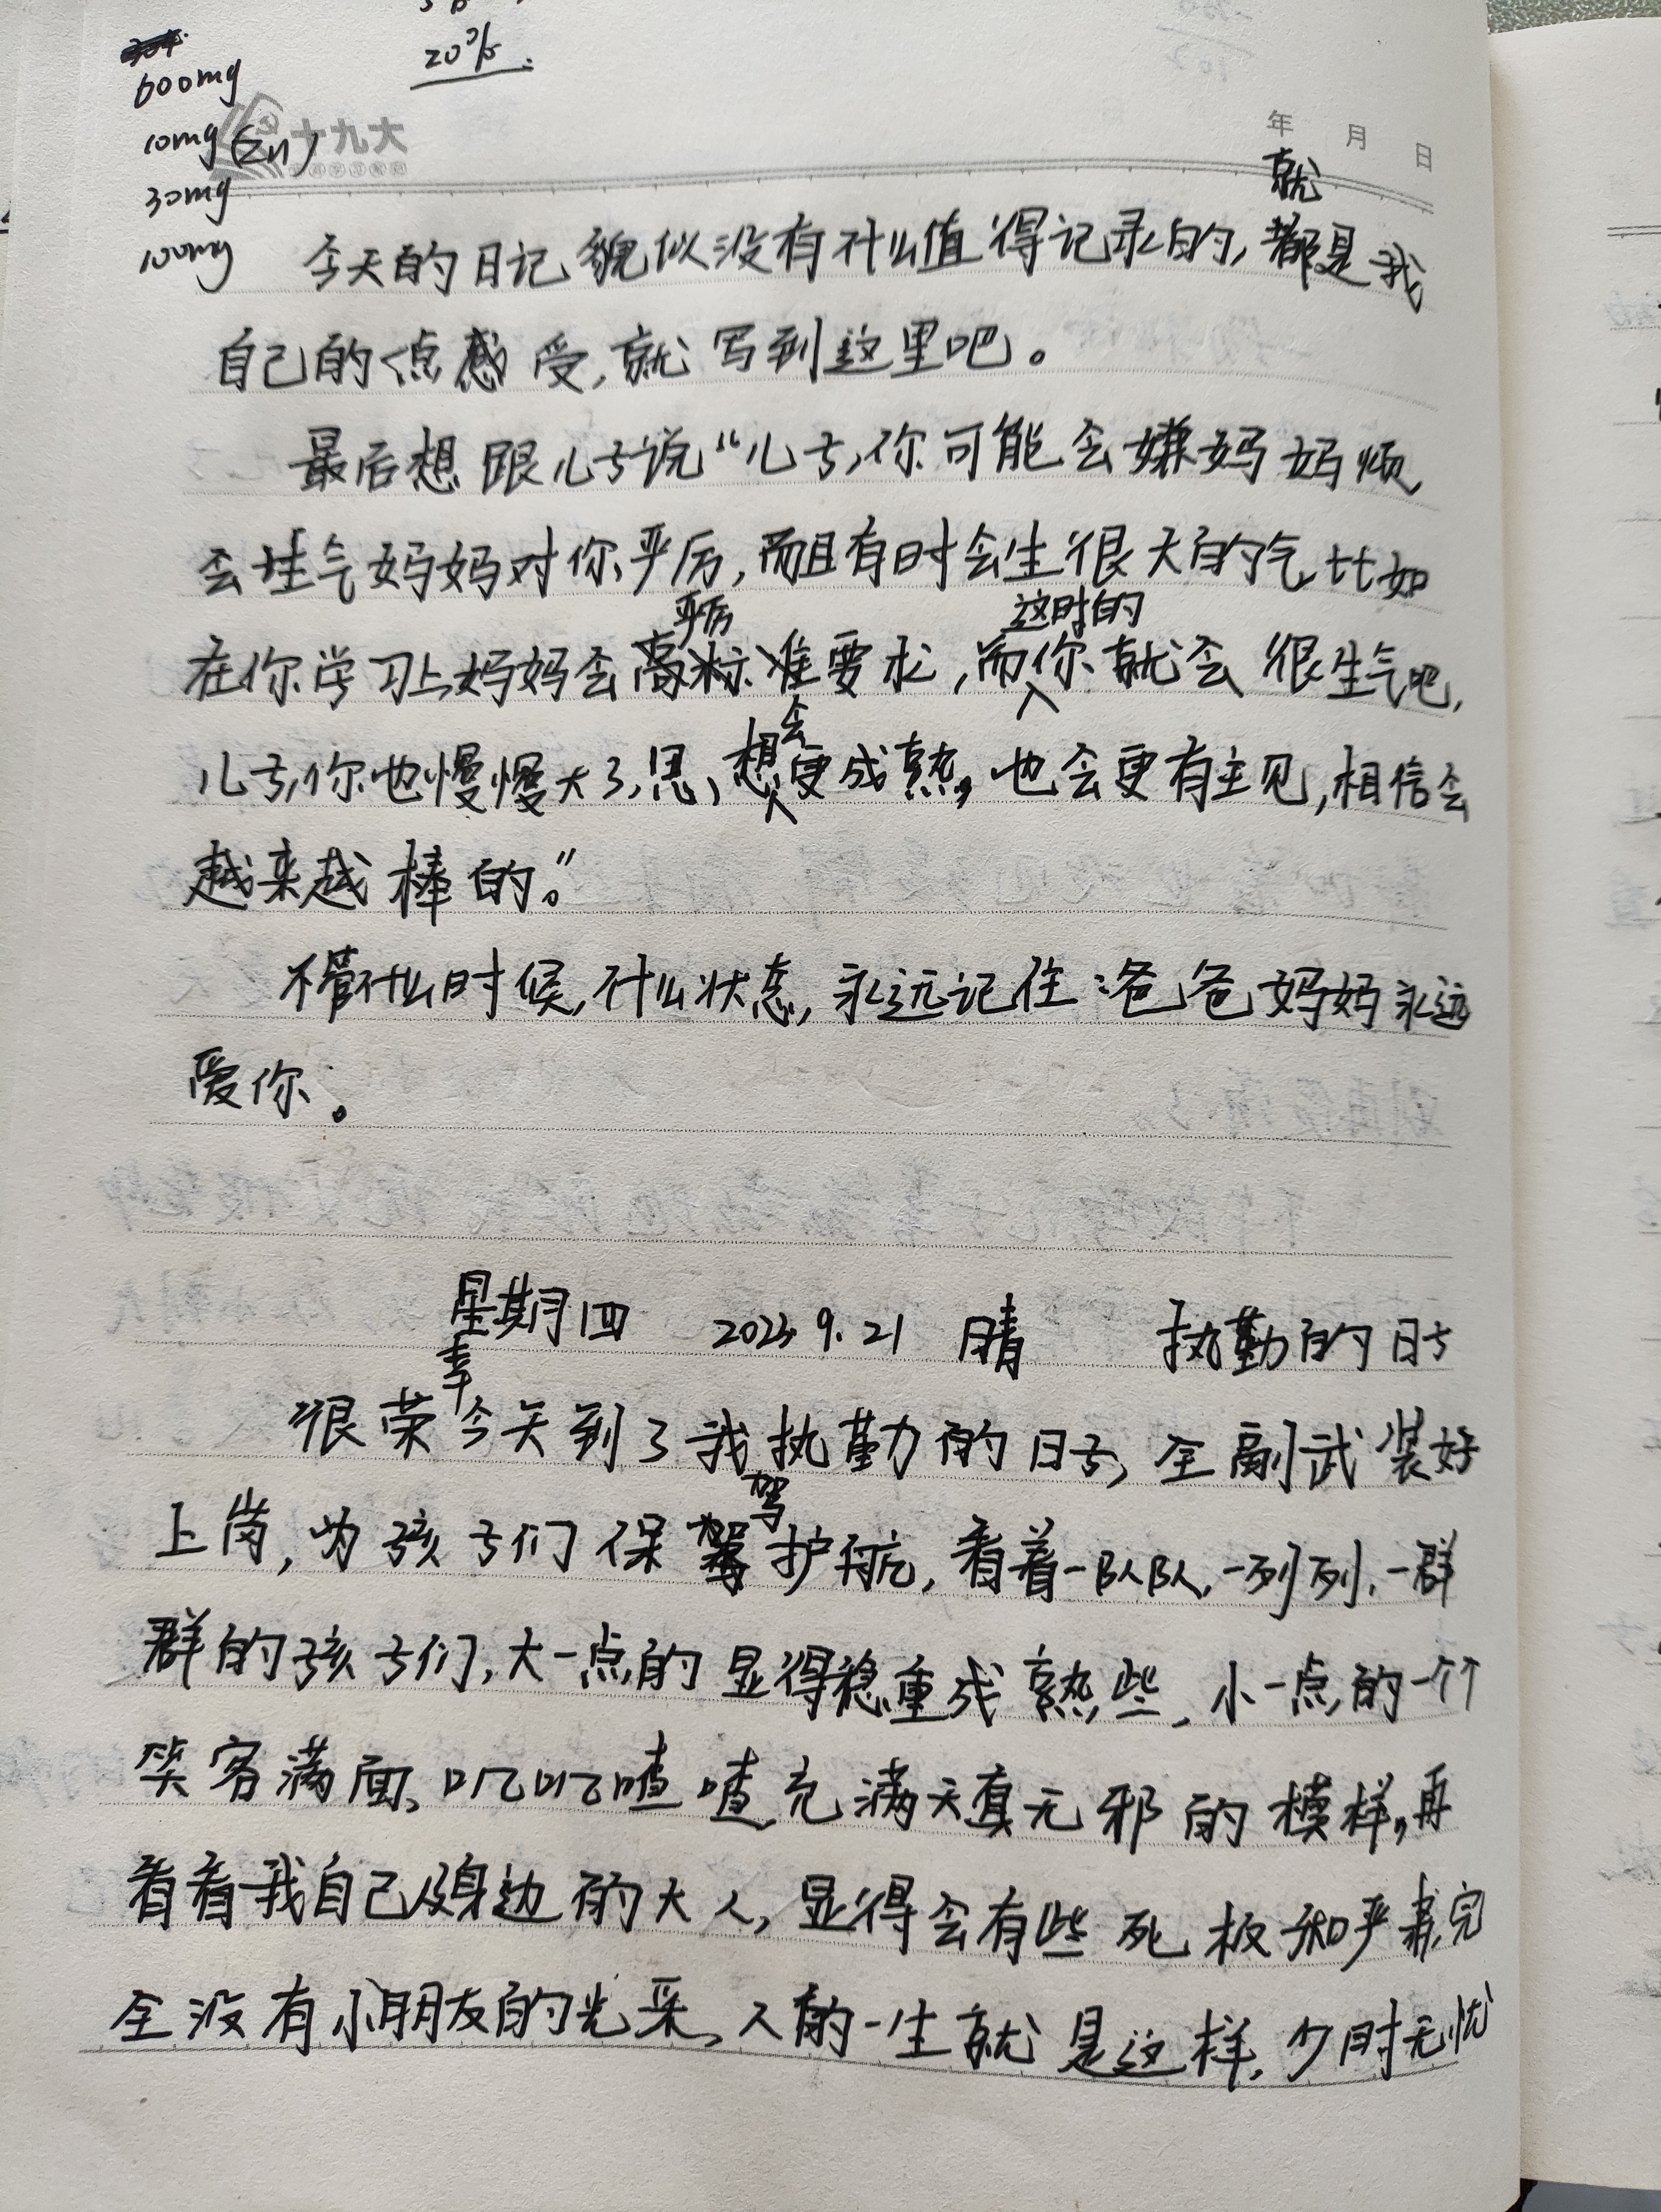 20%
600mg
10mg(Zn)
30mg
100mg
十九大
年 月 日
就
今天的日记貌似没有什么值得记录的,都是我
自己的点感受,就写到这里吧。
最后想跟儿子说“儿子,你可能会嫌妈妈烦,
会生气妈妈对你严厉,而且有时会生很大的气,比如
严厉 这时的
在你学习上妈妈会高标准要求,而你就会很生气吧,
会
儿子,你也慢慢大了,思想更成熟,也会更有主见,相信会
越来越棒的。”
不管什么时候,什么状态,永远记住:爸爸妈妈永远
爱你。
星期四 2023.9.21 晴 执勤的日子
幸
很荣今天到了我执勤的日子,全副武装好
驾
上岗,为孩子们保驾护航,看着一队队,一列列,一群
群的孩子们,大一点的显得稳重成熟些,小一点的一个个
笑容满面,叽叽喳喳充满天真无邪的模样,再
看看我自己及身边的大人,显得会有些死板和严肃,完
全没有小朋友的光采,人的一生就是这样,少时无忧